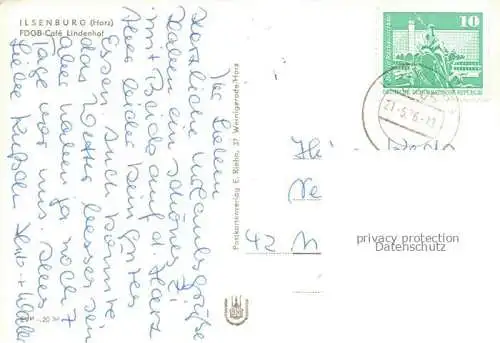 ILSENBURG (Harz)
FDGB-Café Lindenhof
Ihr Lieben
Herzliche Urlaubsgrüße
Haben ein schönes Zi.
mit Blick auf d. Harz
Aber leider kein gutes
Essen. Auch könnte
das Wetter besser sein
aber haben ja noch 7
Tage vor uns. Alles
Liebe
Postkartenverlag E. Riehn, 37 Wernigerode/Harz
10
DEUTSCHE DEMOKRATISCHE REPUBLIK
42
privacy protection
Datenschutz